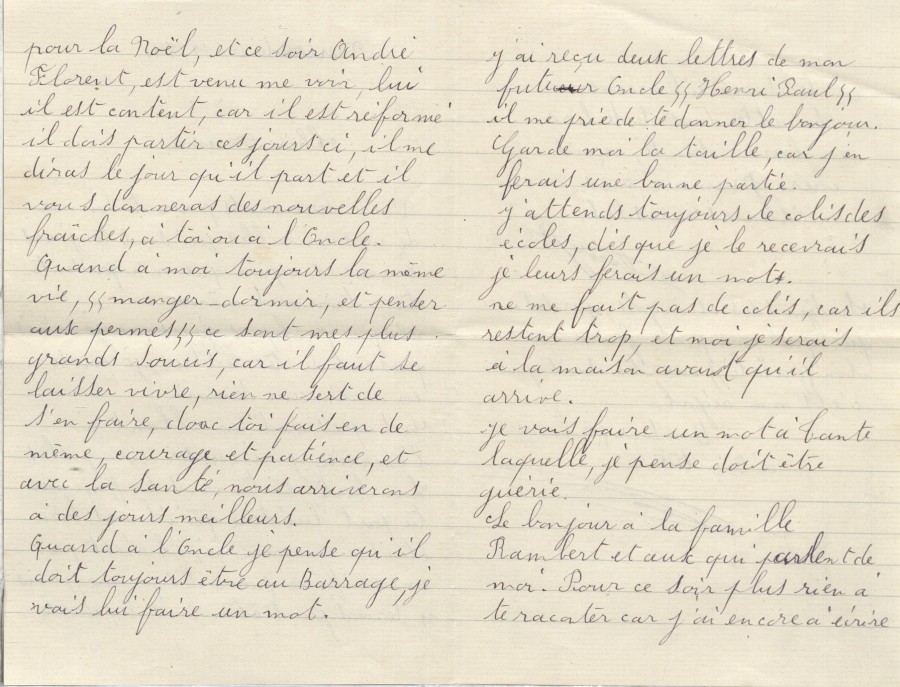 pour la Noël, et ce soir André
Florent, est venu me voir, lui
il est content, car il est réformé
il dois partir ces jours ci, il me
diras le jour qu'il part et il
vous donneras des nouvelles
fraîches, à toi ou à l'Oncle.
Quand à moi toujours la même
vie, "manger - dormir, et penser
aux permes" ce sont mes plus
grands soucis, car il faut se
laisser vivre, rien ne sert de
s'en faire, donc toi fais en de
même, courage et patience, et
avec la santé, nous arriverons
à des jours meilleurs.
Quand à l'Oncle je pense qu'il
doit toujours être au Barrage, je
vais lui faire un mot.
j'ai reçu deux lettres de mon
futur Oncle "Henri Paul"
il me prie de te donner le bonjour.
Garde moi la taille, car j'en
ferais une bonne partie.
j'attends toujours le colis des
écoles, dès que je le recevrais
je leurs ferais un mot.
ne me fait pas de colis, car ils
restent trop, et moi je serais
à la maison avant qu'il
arrive.
je vais faire un mot à Tante
laquelle, je pense doit être
guérie.
Le bonjour à la famille
Rambert et aux qui parlent de
moi. Pour ce soir plus rien à
te raconter car j'ai encore à écrire